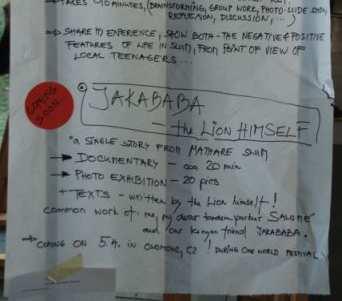 TAKES 90 MINUTES, (BRAINSTORMING, GROUP WORK, PHOTO-SLIDE SHOW,
DISCUSSION, ...)
→ SHARE MY EXPERIENCE, SHOW BOTH - THE NEGATIVE & POSITIVE
FEATURES OF LIFE IN SLUM, FROM POINT OF VIEW OF
LOCAL TEENAGERS...
COMING
SOON
JAKABABA
- the LION HIMSELF
"a SINGLE STORY FROM MATHARE SLUM
→ DOCUMENTARY - 20 min
→ PHOTO EXHIBITION - 20 pics
+ TEXTS - written by the Lion himself!
common work of me, my dear partner SALOME
and our kenyan friend JAKABABA.
→ COMING ON 5.4. in OLOMOUC, CZ! DURING ONE WORLD FESTIVAL